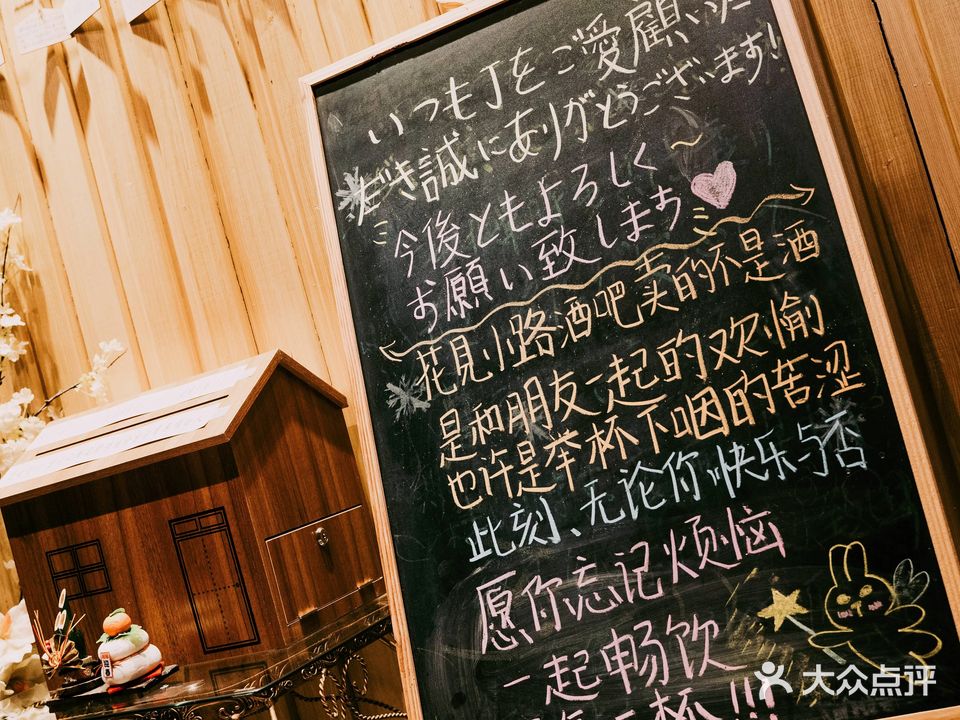 いつもJをご愛顧いた
だき誠にありがとうございます!
今後ともよろしく
お願い致します
花見小路酒吧卖的不是酒
是和朋友一起的欢愉
也许是举杯下咽的苦涩
此刻、无论你快乐与否
愿你忘记烦恼
一起畅饮
杯!!!
大众点评